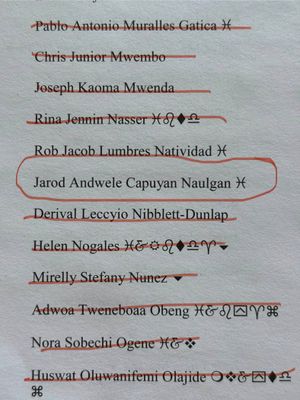 Pablo Antonio Muralles Gatica ♓
Chris Junior Mwembo
Joseph Kaoma Mwenda
Rina Jennin Nasser ♓♌♦♎
Rob Jacob Lumbres Natividad ♓
Jarod Andwele Capuyan Naulgan ♓
Derival Leccyio Nibblett-Dunlap
Helen Nogales ♓&✡♌♦♎♈
Mirelly Stefany Nunez
Adwoa Tweneboaa Obeng ♓&♌⍓♈⌘
Nora Sobechi Ogene ♓&❖
Huswat Oluwanifemi Olajide ❍❖&⍓♦♎
⌘